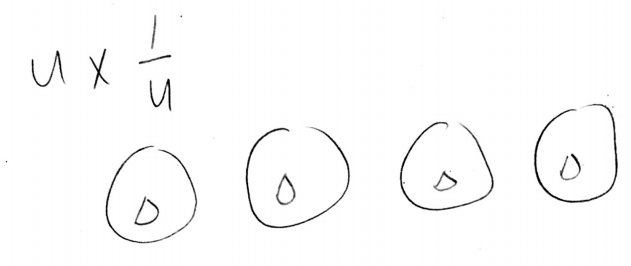 4 × 1/4